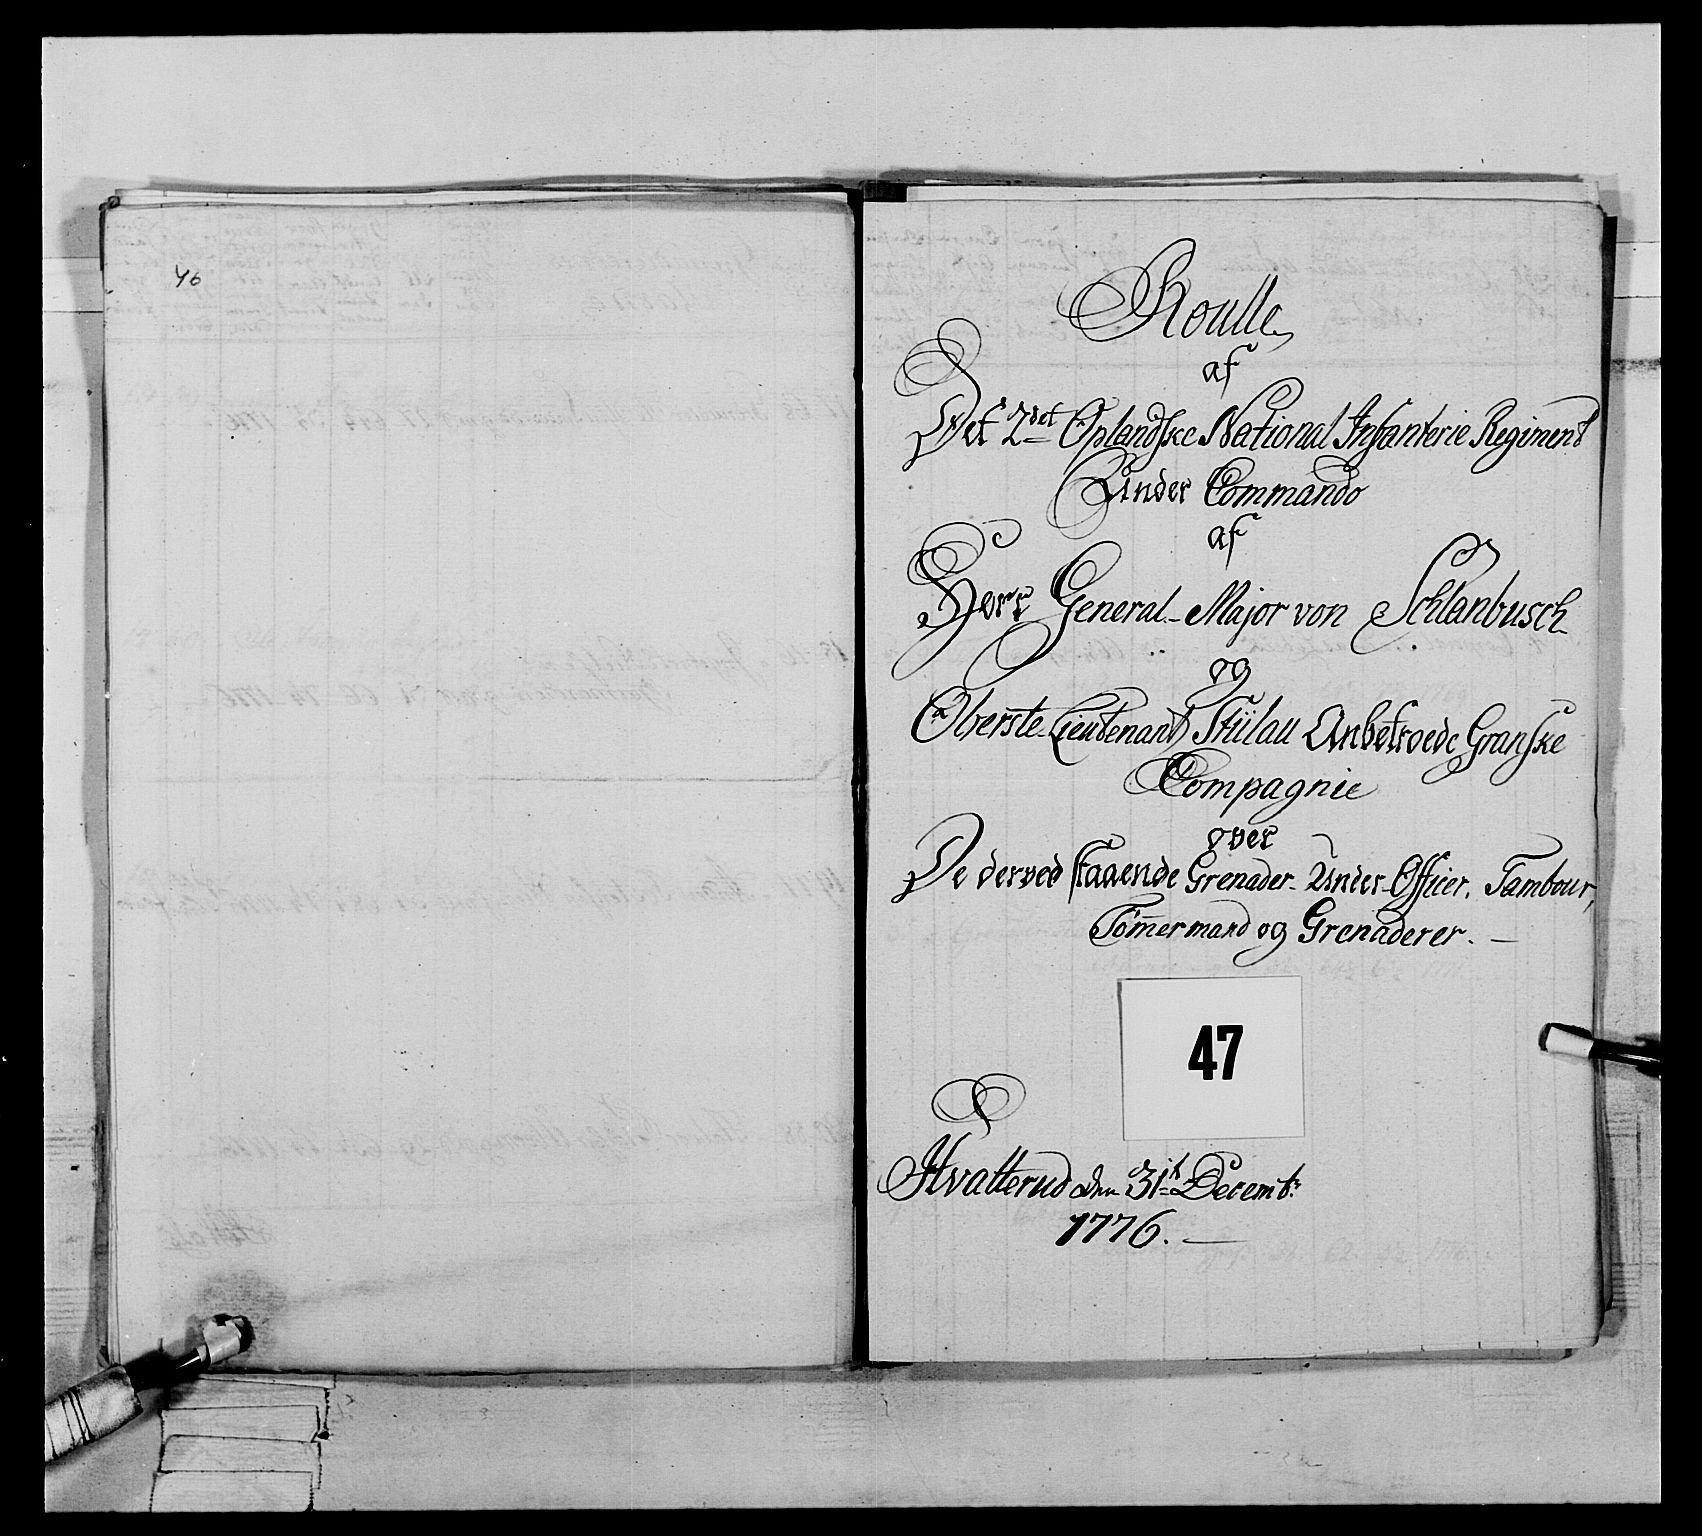 46
Roulle
af
Det 2det Oplandske National Infanterie Regiment
Under Commando
af
Herr General-Major von Schlanbusch
og
Oberste-Lieutenant Stülau Anbetroede Granske
Compagnie
over
De derved staaende Grenader-Under-Officer, Tambour,
Tömmermand og Grenaderer.
47
Hvatterud den 31te Decembr:
1776.